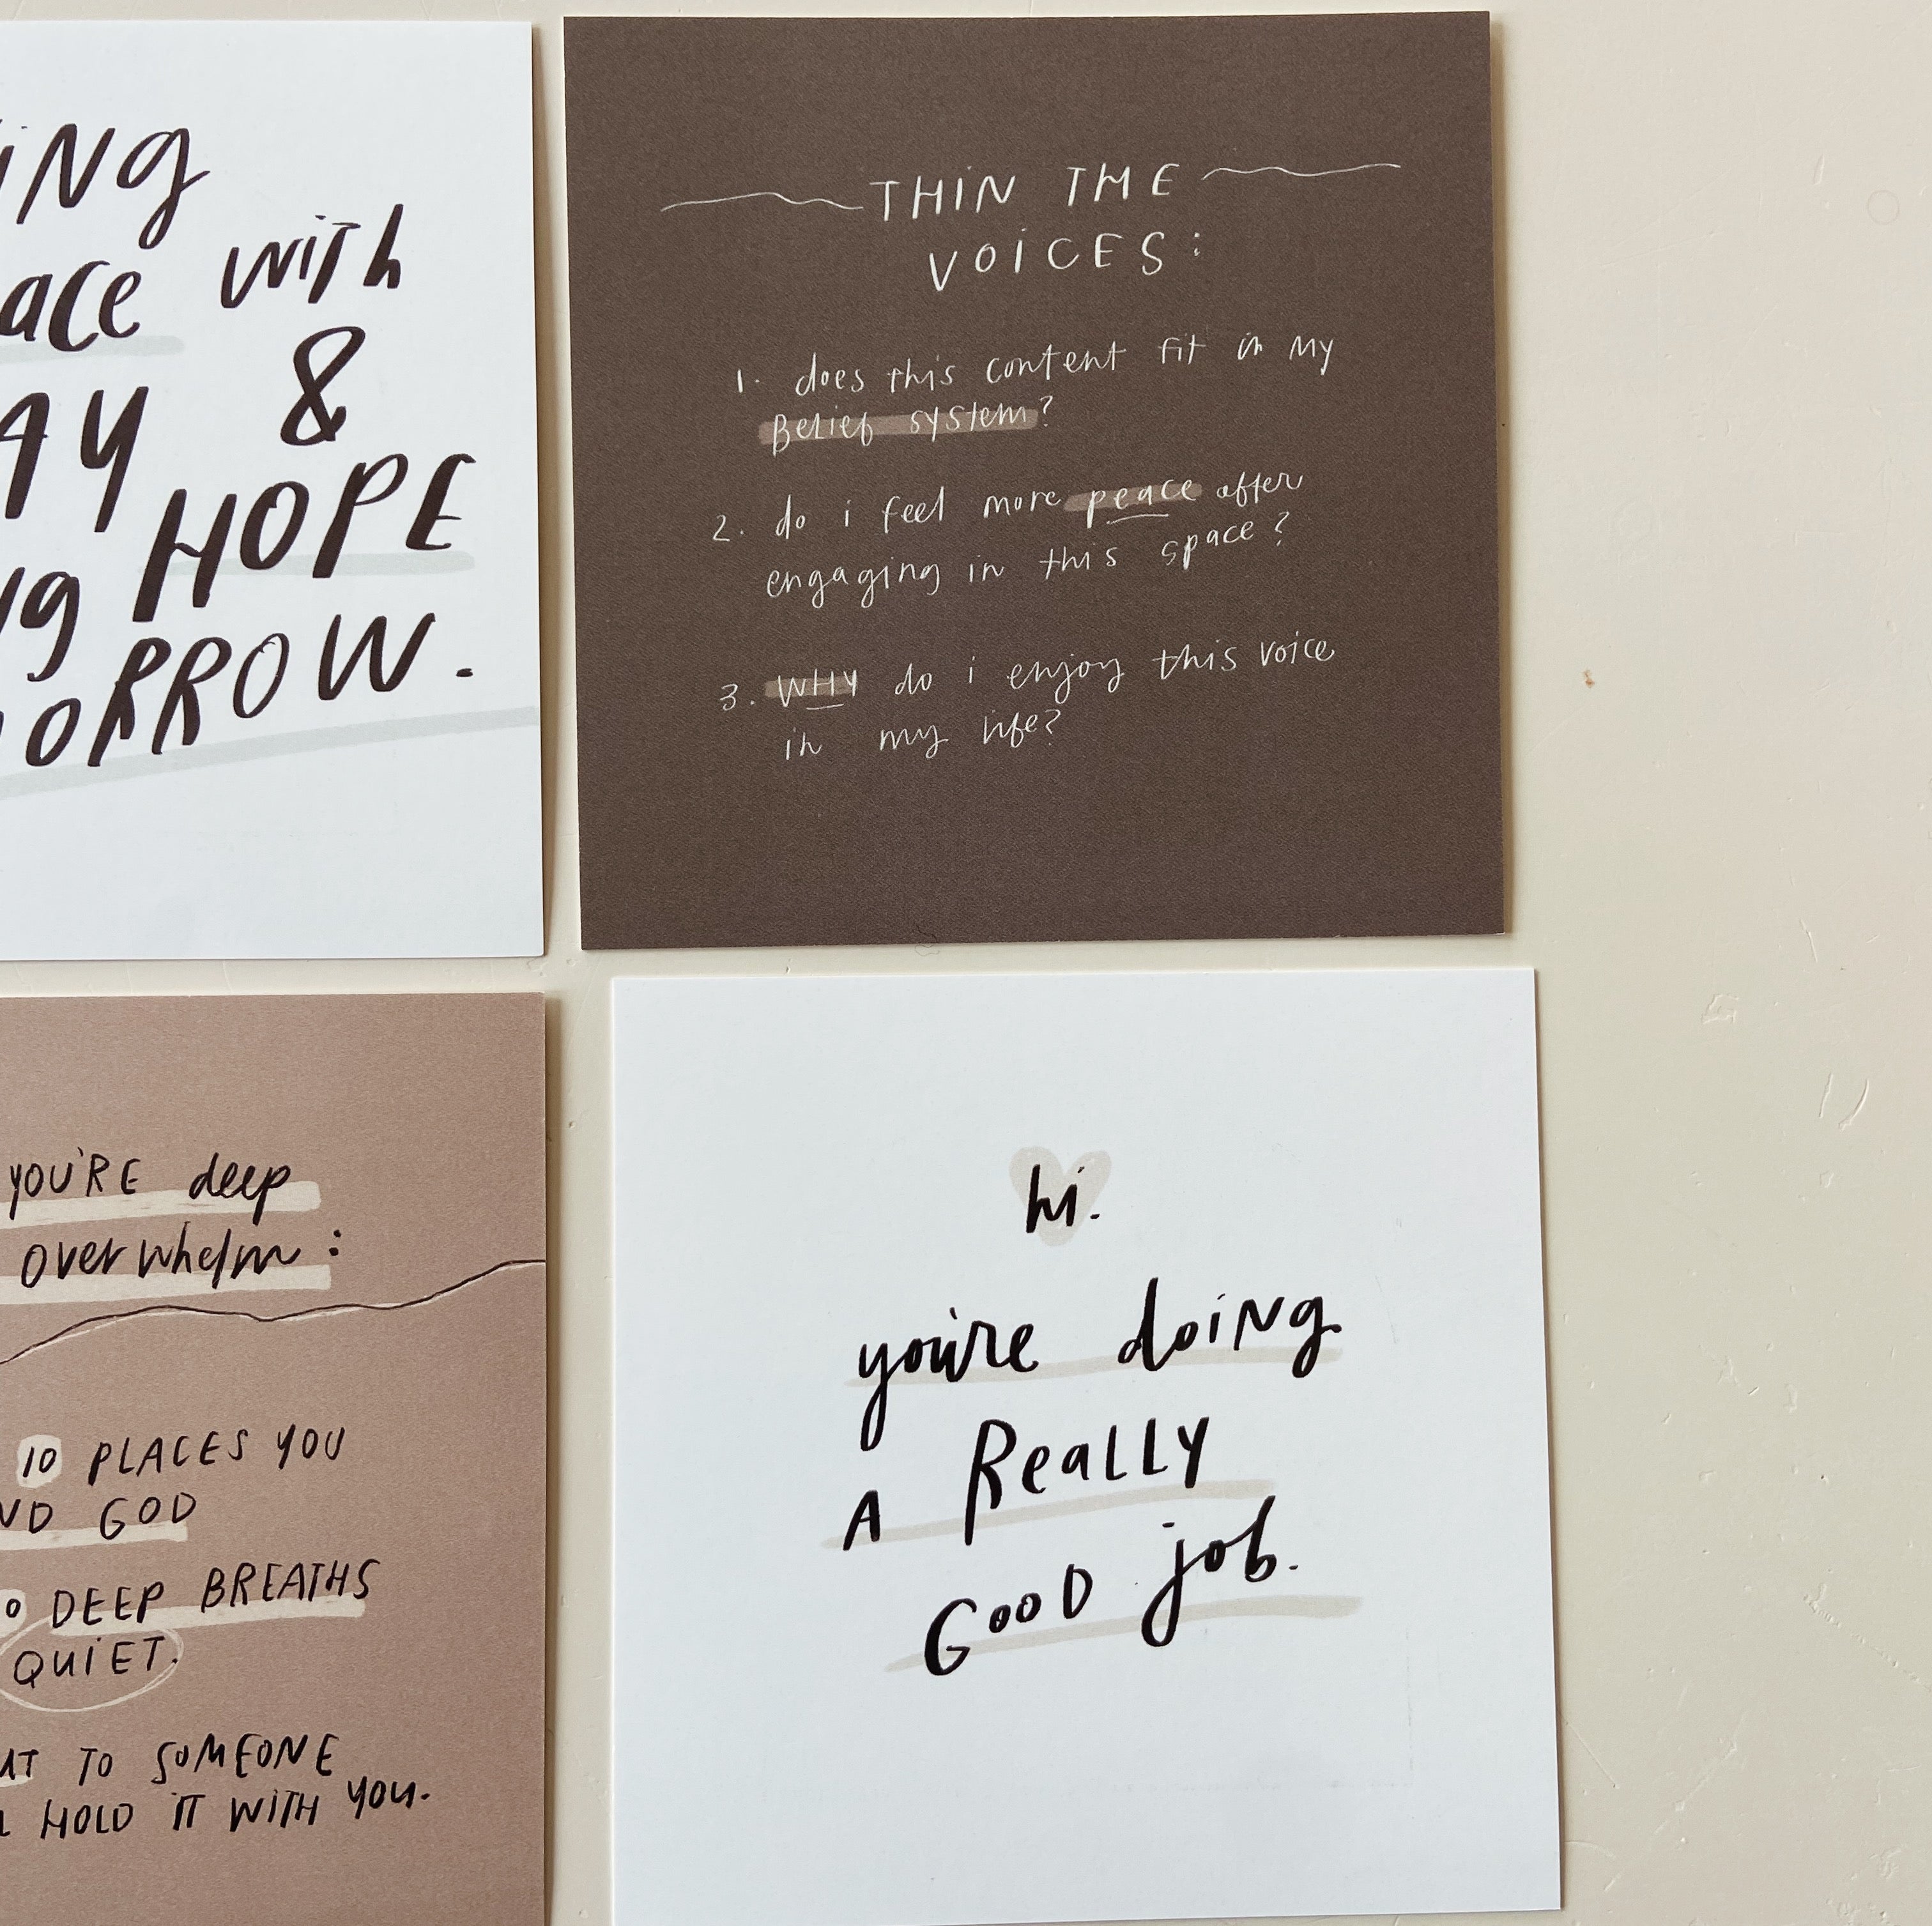 with
&
HOPE
THIN THE
VOICES:
1. does this content fit in my
Belief system?
2. do i feel more peace after
engaging in this space?
3. WHY do i enjoy this voice
in my life?
YOU'RE deep
overwhelm:
10 PLACES YOU
GOD
DEEP BREATHS
QUIET.
TO SOMEONE
HOLD IT WITH YOU.
hi.
you're doing
A Really
GOOD job.